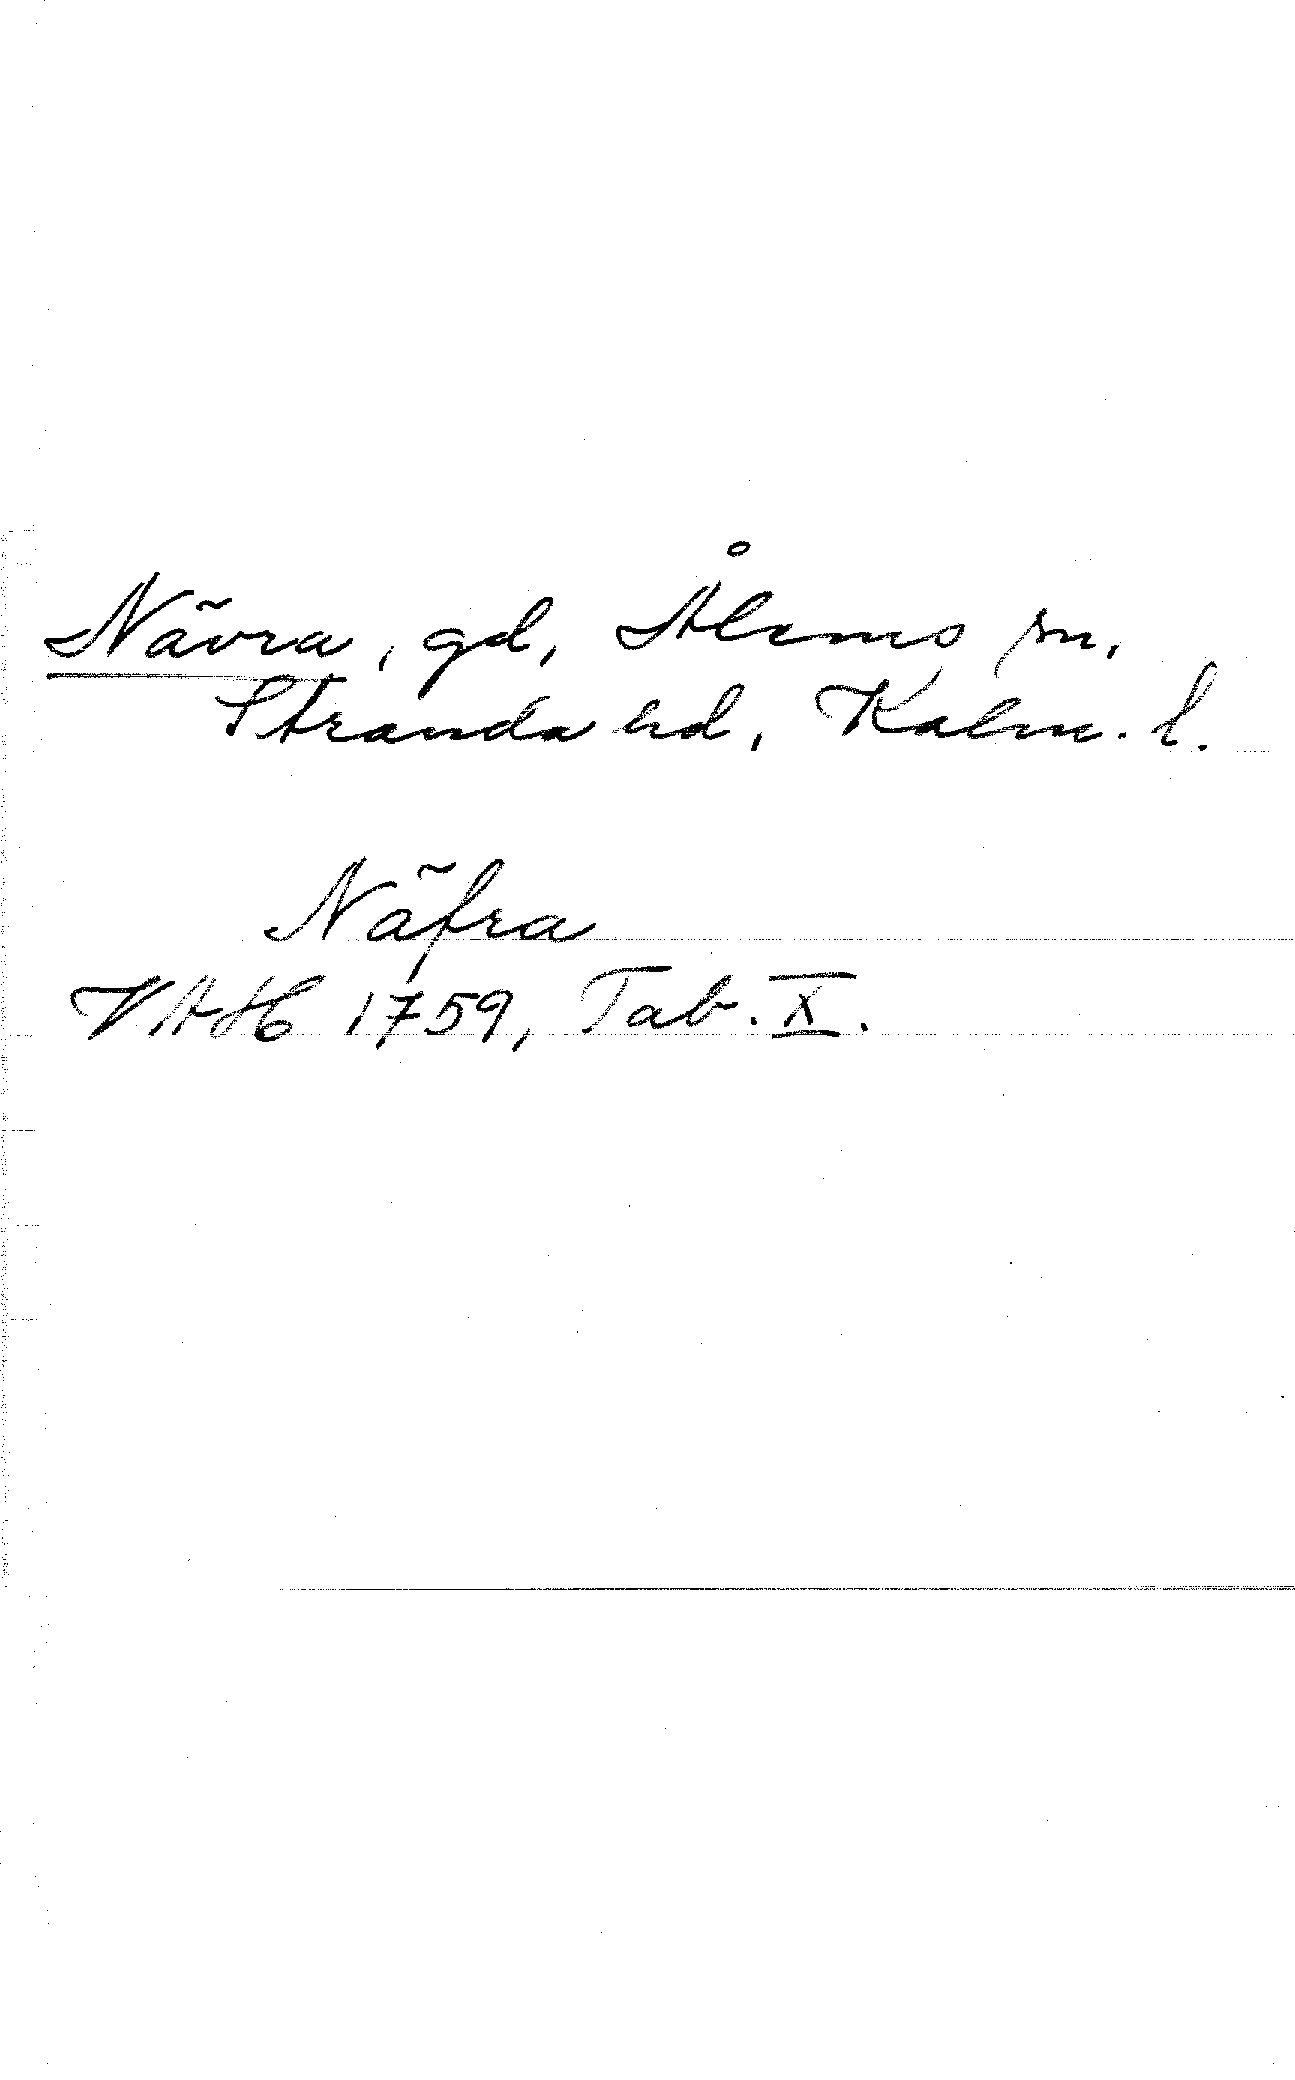 Nävra, gd, Ålems sn,
Stranda hd, Kalm. l.
Näfra
VAH 1759, Tab. X.